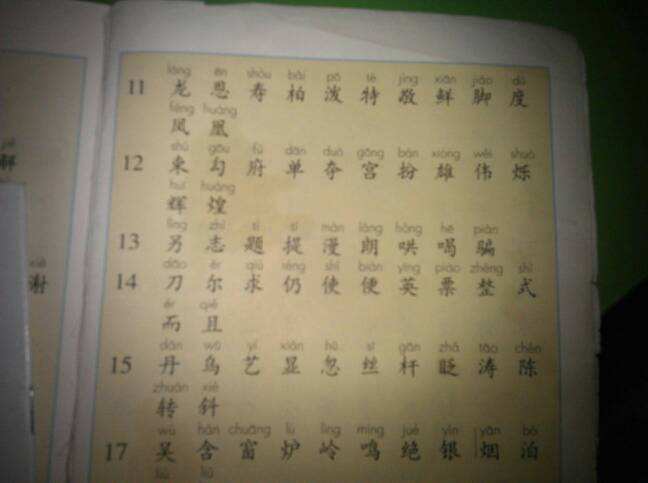 lóng ēn shòu bǎi pō tè jìng xiān jiǎo dù
11 龙 恩 寿 柏 泼 特 敬 鲜 脚 度
fèng huáng
凤 凰
shù gōu fǔ dān duó gōng bàn xióng wěi shuò
12 束 勾 府 单 夺 宫 扮 雄 伟 烁
huī huáng
辉 煌
lìng zhì tí tí màn lǎng hǒng hē piàn
13 另 志 题 提 漫 朗 哄 喝 骗
dāo ěr qiú réng shǐ biàn yīng piào zhěng shì
14 刀 尔 求 仍 使 便 英 票 整 式
ér qiě
而 且
dān wū yì xiǎn hū sī gān zhǎ tāo chén
15 丹 乌 艺 显 忽 丝 杆 眨 涛 陈
zhuǎn xié
转 斜
wú hán chuāng lú lǐng míng jué yín yān bó
17 吴 含 窗 炉 岭 鸣 绝 银 烟 泊
liú
解
谢 xiè